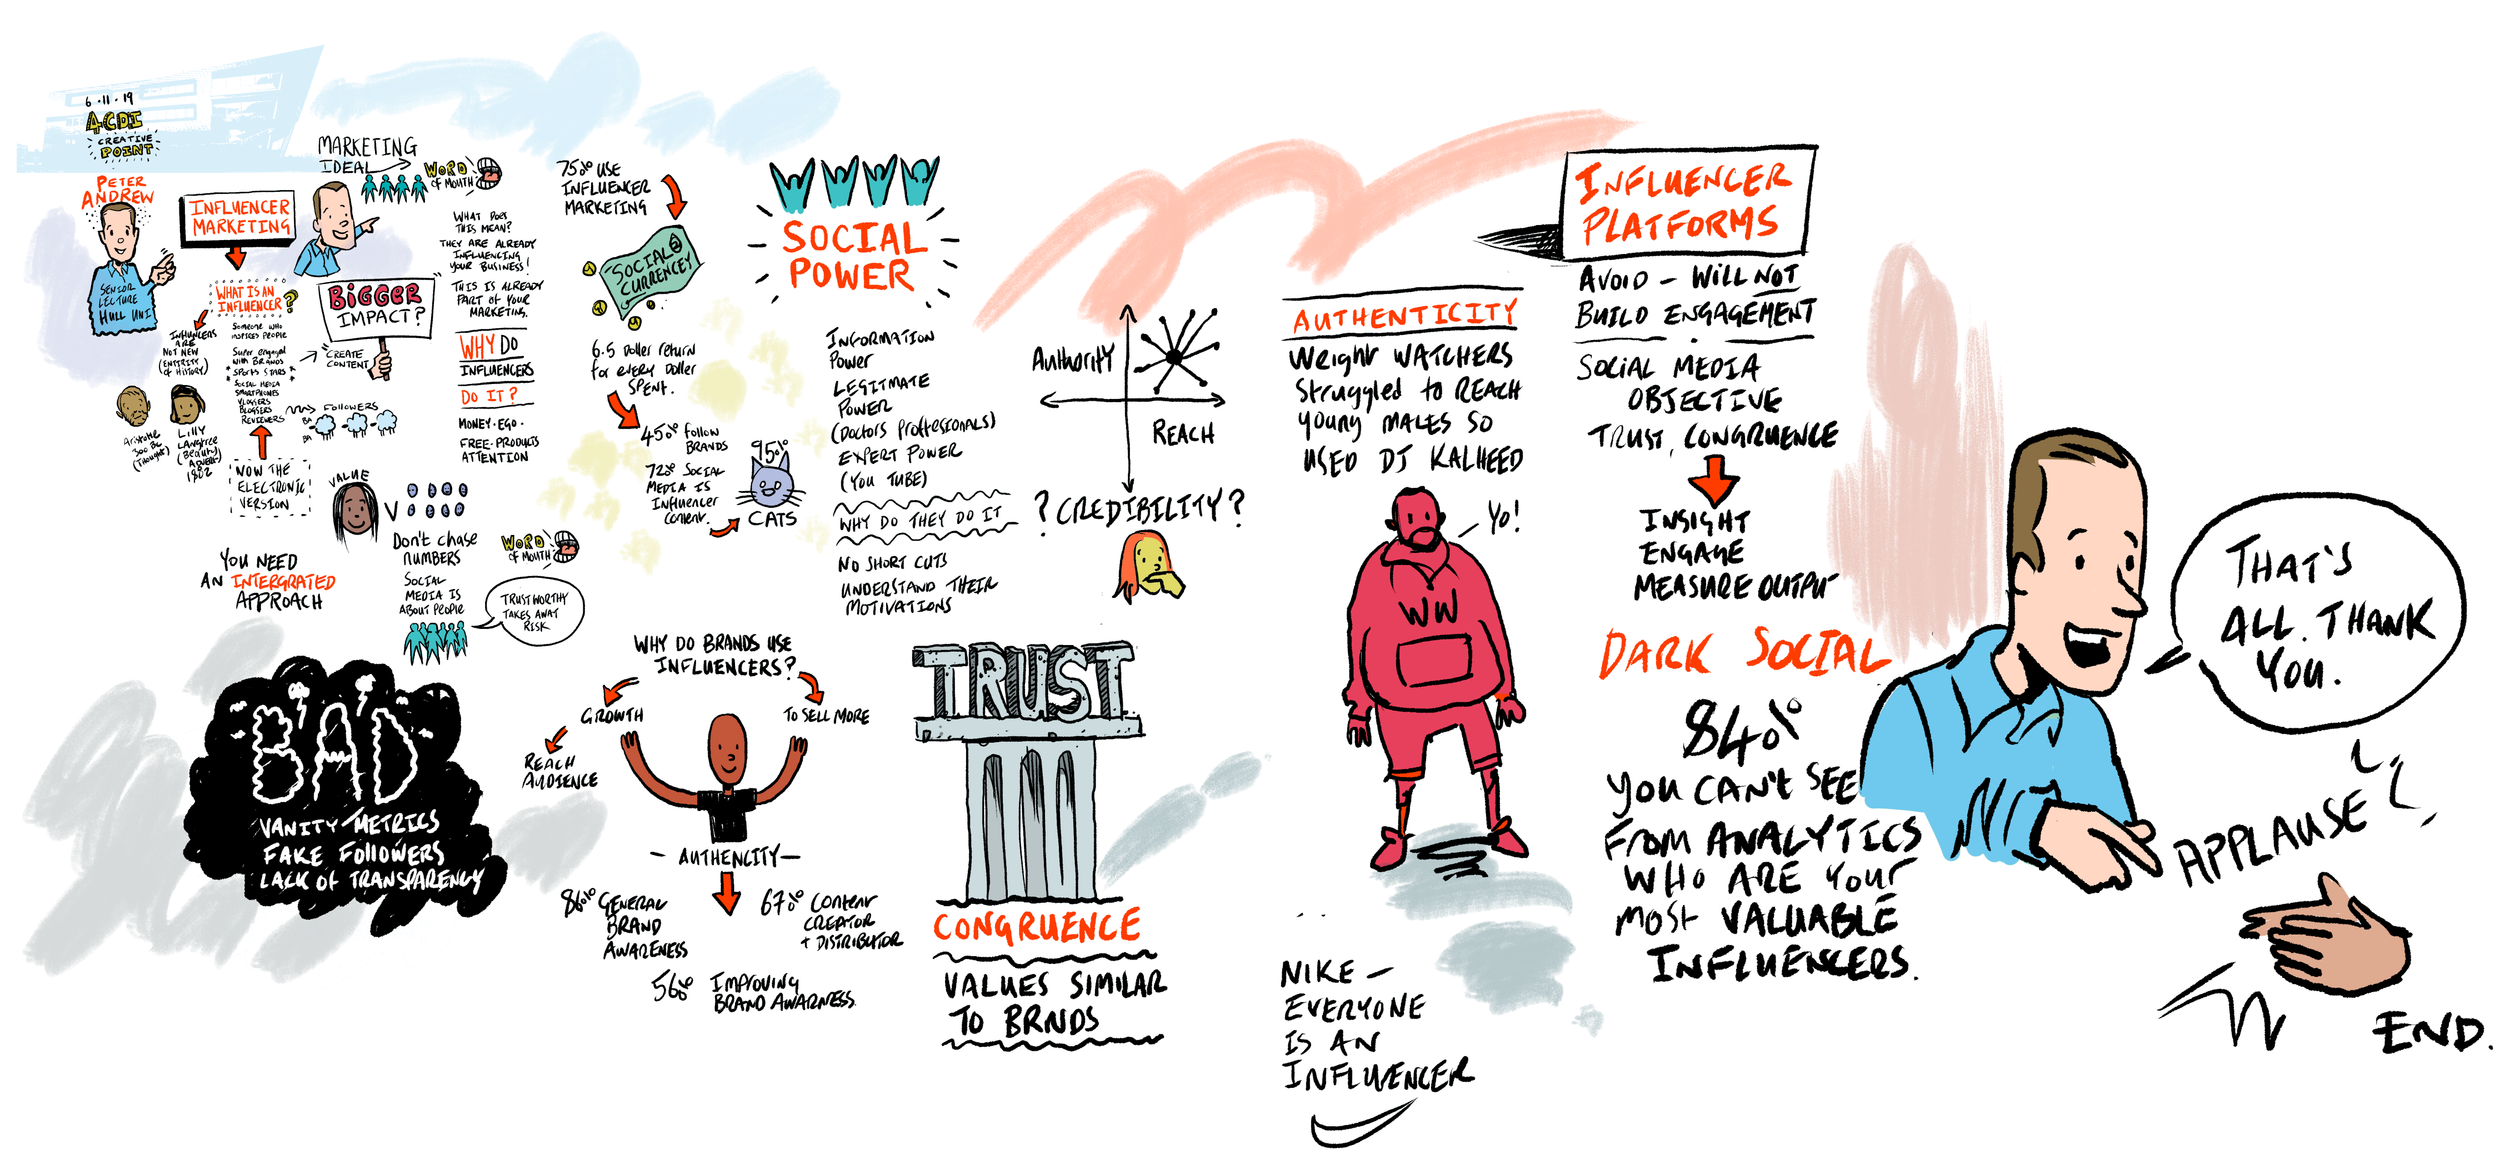 6·11·19
4CDI
CREATIVE
POINT
PETER
ANDREW
SENSOR
LECTURE
HULL UNI
INFLUENCER
MARKETING
WHAT IS AN
INFLUENCER?
SOMEONE WHO
INSPIRES PEOPLE
SUPER ENGAGED
WITH BRANDS
SPORTS STARS
SOCIAL MEDIA
SMARTPHONES
VLOGGERS
BLOGGERS
REVIEWERS
INFLUENCERS
ARE
NOT NEW
(ENTIRITY
OF HISTORY)
ARISTOTLE
300 BC
(THOUGHT)
LILLY
LANGTREE
(BEAUTY)
ADVERT
1882
NOW THE
ELECTRONIC
VERSION
CREATE
CONTENT
FOLLOWERS
BA
BA
MARKETING
IDEAL
WORD
OF MOUTH
BIGGER
IMPACT?
WHAT DOES
THIS MEAN?
THEY ARE ALREADY
INFLUENCING
YOUR BUSINESS!
THIS IS ALREADY
PART OF YOUR
MARKETING.
WHY DO
INFLUENCERS
DO IT?
MONEY·EGO·
FREE·PRODUCTS
ATTENTION
VALUE
V
DON'T CHASE
NUMBERS
SOCIAL
MEDIA IS
ABOUT PEOPLE
WORD
OF MOUTH
TRUSTWORTHY
TAKES AWAY
RISK
YOU NEED
AN INTERGRATED
APPROACH
BAD
VANITY METRICS
FAKE FOLLOWERS
LACK OF TRANSPARENCY
75% USE
INFLUENCER
MARKETING
SOCIAL
CURRENCEY
6.5 DOLLER RETURN
FOR EVERY DOLLER
SPENT.
45% FOLLOW
BRANDS
72% SOCIAL
MEDIA IS
INFLUENCER
CONTENT.
95%
CATS
WHY DO BRANDS USE
INFLUENCERS?
GROWTH
REACH
AUDIENCE
TO SELL MORE
— AUTHENCITY —
86% GENERAL
BRAND
AWARENESS
67% CONTENT
CREATOR
+ DISTRIBUTOR
56% IMPROVING
BRAND AWARNESS.
SOCIAL
POWER
INFORMATION
POWER
LEGITMATE
POWER
(DOCTORS PROFFESIONALS)
EXPERT POWER
(YOU TUBE)
WHY DO THEY DO IT
NO SHORT CUTS
UNDERSTAND THEIR
MOTIVATIONS
TRUST
CONGRUENCE
VALUES SIMILAR
TO BRNDS
AUTHORITY
REACH
? CREDIBILITY ?
AUTHENTICITY
WEIGHT WATCHERS
STRUGGLED TO REACH
YOUNG MALES SO
USED DJ KALHEED
YO!
WW
NIKE —
EVERYONE
IS AN
INFLUENCER
INFLUENCER
PLATFORMS
AVOID — WILL NOT
BUILD ENGAGEMENT
SOCIAL MEDIA
OBJECTIVE
TRUST, CONGRUENCE
INSIGHT
ENGAGE
MEASURE OUTPUT
DARK SOCIAL
84%
YOU CAN'T SEE
FROM ANALYTICS
WHO ARE YOUR
MOST VALUABLE
INFLUENCERS.
THAT'S
ALL. THANK
YOU.
APPLAUSE
END.